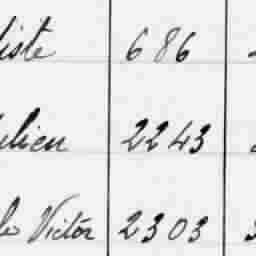 liste 686
ulien 2243
Victor 2303